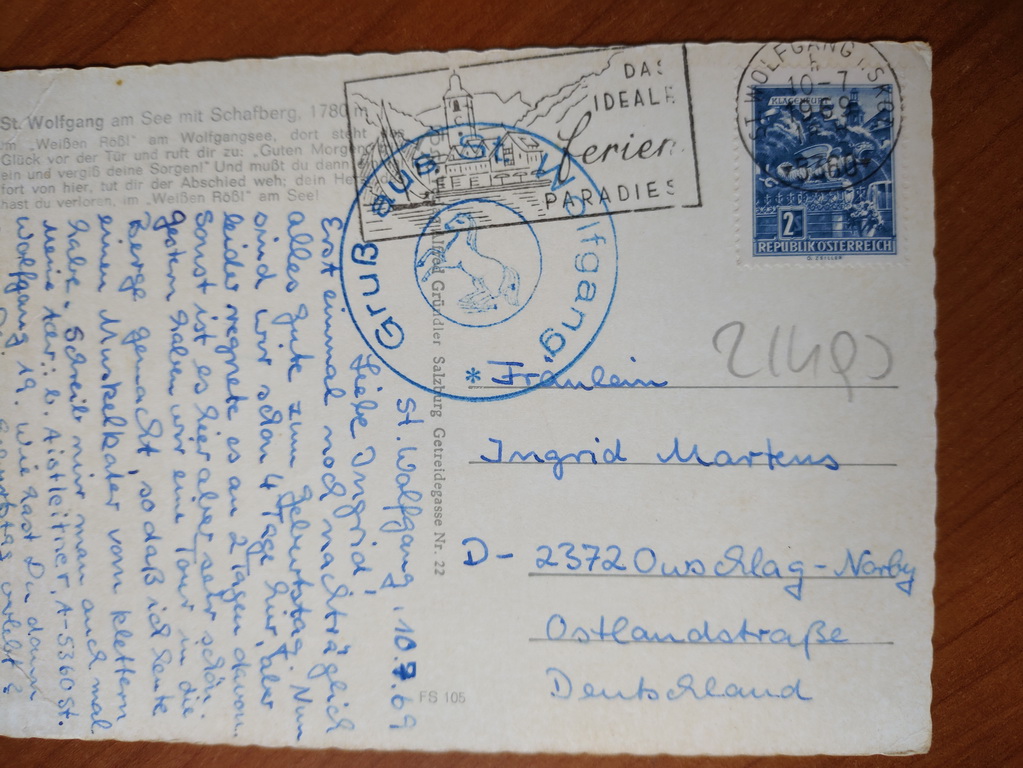 St. Wolfgang am See mit Schafberg, 1780 m
Im „Weißen Rößl" am Wolfgangsee, dort steht das
Glück vor der Tür und ruft dir zu: „Guten Morgen
ein und vergiß deine Sorgen!" Und mußt du dann
fort von hier, tut dir der Abschied weh; dein Herz
hast du verloren, im „Weißen Rößl" am See!
DAS
IDEALE
Ferien
PARADIES
ST. WOLFGANG I. SK
10-7
1969
5360
KLAGENFURT
2
REPUBLIK ÖSTERREICH
Gruß aus St. Wolfgang *
Gründler Salzburg Getreidegasse Nr. 22
FS 105
St. Wolfgang, 10.7.69
Liebe Ingrid,
Erst einmal noch nachträglich
alles gute zum Geburtstag. Nun
sind wir schon 4 Tage hier, aber
leider regnete es an 2 Tagen davon.
Sonst ist es hier aber sehr schön.
Gestern haben wir eine Tour in die
Berge gemacht, so daß ich heute
einen Muskelkater vom klettern
habe. Schreib mir man auch mal
Meine Adr.: b. Aistleitner, A-5360 St.
Wolfgang 19. Wie hast Du dann
Geburtstag verlebt?
21490
Fräulein
Ingrid Martens
D- 2372 Owschlag-Norby
Ostlandstraße
Deutschland